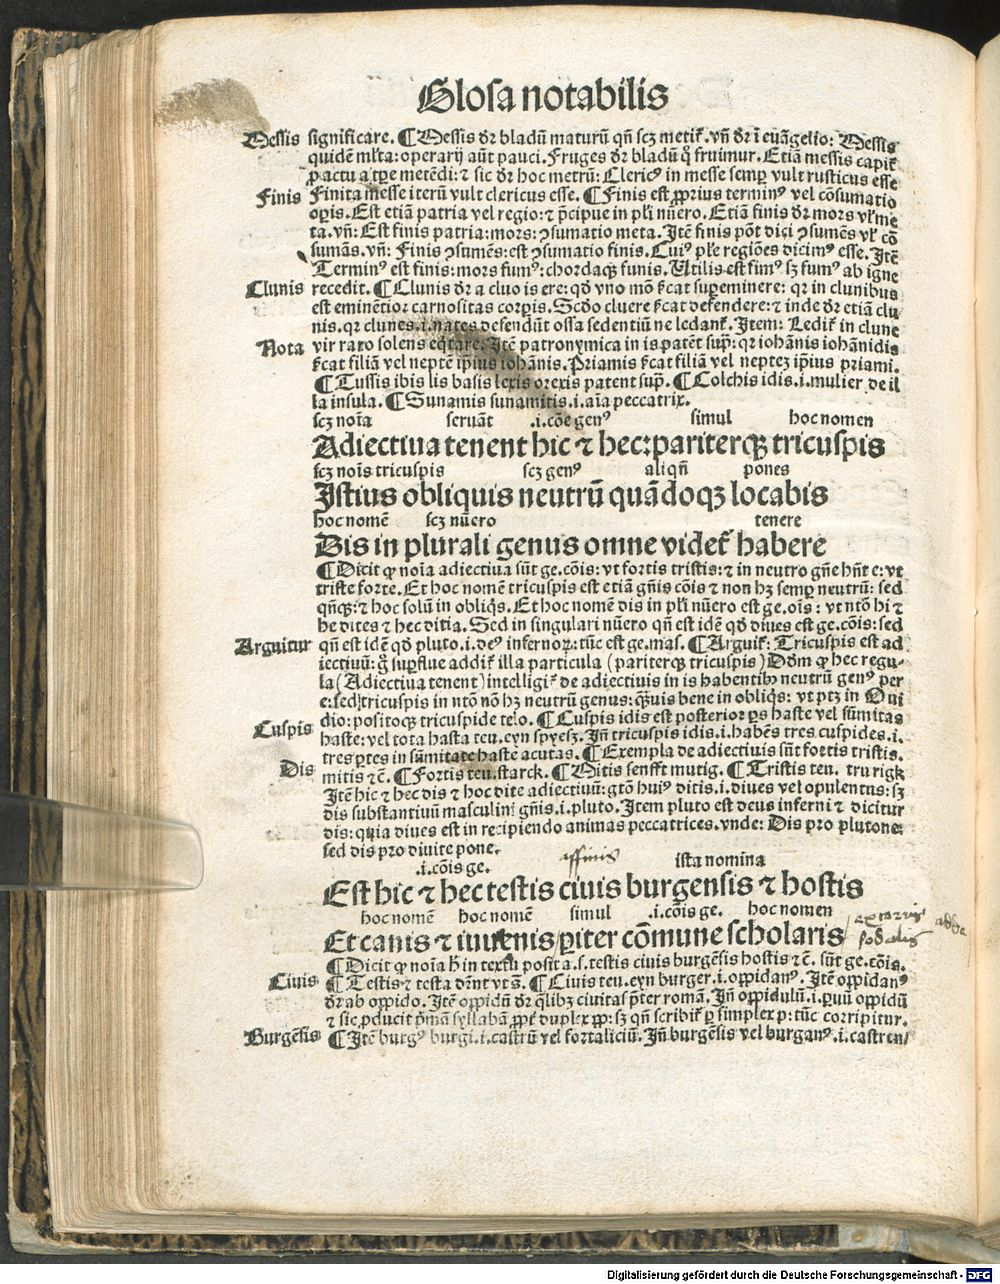 Glosa notabilis
Messis significare. ¶ Messis dr̄ bladū maturū qn̄ scꝫ metit̄. vn̄ dr̄ ī euāgelio: Messis
quidē ml̄ta: operarij aūt pauci. Fruges dr̄ bladū q̄ fruimur. Etiā messis capit̄
ꝓ actu a tp̄e metēdi: ⁊ sic dr̄ hoc metrū: Clericꝰ in messe semꝑ vult rusticus esse
Finis Finita messe iterū vult clericus esse. ¶ Finis est ꝓprius terminꝰ vel cōsumatio
oꝑis. Est etiā patria vel regio: ⁊ p̄cipue in pl̄i nūero. Etiā finis dr̄ mors vl̓ me
ta. vn̄: Est finis patria: mors: ꝯsumatio meta. Itē finis pōt dici ꝯsumēs vl̓ cō
sumās. vn̄: Finis ꝯsumēs: est ꝯsumatio finis. Cuiꝰ pl̄e regiōes dicimꝰ esse. Itē
Terminꝰ est finis: mors fumꝰ: chordaqꝫ funis. Utilis est fimꝰ sꝫ fumꝰ ab igne
Clunis recedit. ¶ Clunis dr̄ a cluo is ere: qd̓ vno mō s̄cat suꝑeminere: qr in clunibus
est eminētior carnositas corꝑis. Scd̓o cluere s̄cat defendere: ⁊ inde dr̄ etiā clu
nis. qr clunes .i. nates defendūt ossa sedentiū ne ledant̄. Item: Ledit̄ in clune
Nota vir raro solens eq̄tare. Itē patronymica in is patēt sup̄: qr iohānis iohānidis
s̄cat filiā vel neptē ip̄ius iohānis. Priamis s̄cat filiā vel neptez ip̄ius priami.
¶ Tussis ibis lis basis lexis orexis patent sup̄. ¶ Colchis idis .i. mulier de il
la insula. ¶ Sunamis sunamitis .i. aīa peccatrix.
scꝫ noīa seruāt .i. cōe genꝰ simul hoc nomen
Adiectiua tenent hic ⁊ hec: pariterqꝫ tricuspis
scꝫ noīs tricuspis scꝫ genꝰ aliqn̄ pones
Istius obliquis neutrū quādoqꝫ locabis
hoc nomē scꝫ nūero tenere
Dis in plurali genus omne videt̄ habere
¶ Dicit ꝙ noīa adiectiua sūt ge. cōis: vt fortis tristis: ⁊ in neutro gn̄e hn̄t e: vt
triste forte. Et hoc nomē tricuspis est etiā gn̄is cōis ⁊ non hꝫ semꝑ neutrū: sed
qn̄qꝫ: ⁊ hoc solū in obliq̄s. Et hoc nomē dis in pl̄i nūero est ge. oīs: vt ntō hi ⁊
he dites ⁊ hec ditia. Sed in singulari nūero qn̄ est idē qd̓ diues est ge. cōis: sed
Arguitur qn̄ est idē qd̓ pluto .i. deꝰ infernoꝝ: tūc est ge. mas. ¶ Arguit̄: Tricuspis est ad
iectiuū: g̊ suꝑflue addit̄ illa particula (pariterqꝫ tricuspis) Dd̓m ꝙ hec regu-
la (Adiectiua tenent) intelligit̄ de adiectiuis in is habentibꝰ neutrū genꝰ per
e: sed tricuspis in ntō nō hꝫ neutrū genus: q̄uis bene in obliq̄s: vt ptꝫ in Oui
dio: positoqꝫ tricuspide telo. ¶ Cuspis idis est posterior ꝑs haste vel sūmitas
Cuspis haste: vel tota hasta teu. eyn spyesz. Jn̄ tricuspis idis .i. habēs tres cuspides .i.
tres ꝑtes in sūmitate haste acutas. ¶ Exempla de adiectiuis sūt fortis tristis.
Dis mitis ⁊c̄. ¶ Fortis teu. starck. ¶ Mitis senfft mutig. ¶ Tristis teu. trurigk
Itē hic ⁊ hec dis ⁊ hoc dite adiectiuū: gtō huiꝰ ditis .i. diues vel opulentus: sꝫ
dis substantiuū masculini gn̄is .i. pluto. Item pluto est deus inferni ⁊ dicitur
dis: quia diues est in recipiendo animas peccatrices. vnde: Dis pro plutone
sed dis pro diuite pone.
.i. cōis ge. affinis ista nomina
Est hic ⁊ hec testis ciuis burgensis ⁊ hostis
hoc nomē hoc nomē simul .i. cōis ge. hoc nomen
Et canis ⁊ iuuenis/ ꝑiter cōmune scholaris
sodalis adde
¶ Dicit ꝙ noīa h̄ in textu posita .s. testis ciuis burgēsis hostis ⁊c̄. sūt ge. cōis.
Ciuis ¶ Testis ⁊ testa dn̄t vt s̄. ¶ Ciuis teu. eyn burger .i. oppidanꝰ. Itē oppidanꝰ
dr̄ ab oppido. Itē oppidū dr̄ q̄libꝫ ciuitas p̄ter romā. Jn̄ oppidulū .i. ꝑuū oppidū
⁊ sic ꝓducit p̄mā syllabā ꝓpt̓ duplex pp: sꝫ qn̄ scribit̄ ꝑ simplex p: tūc corripitur.
Burgēsis ¶ Itē burgꝰ burgi .i. castrū vel fortaliciū. Jn̄ burgēsis vel burganꝰ .i. castren/
Digitalisierung gefördert durch die Deutsche Forschungsgemeinschaft - DFG